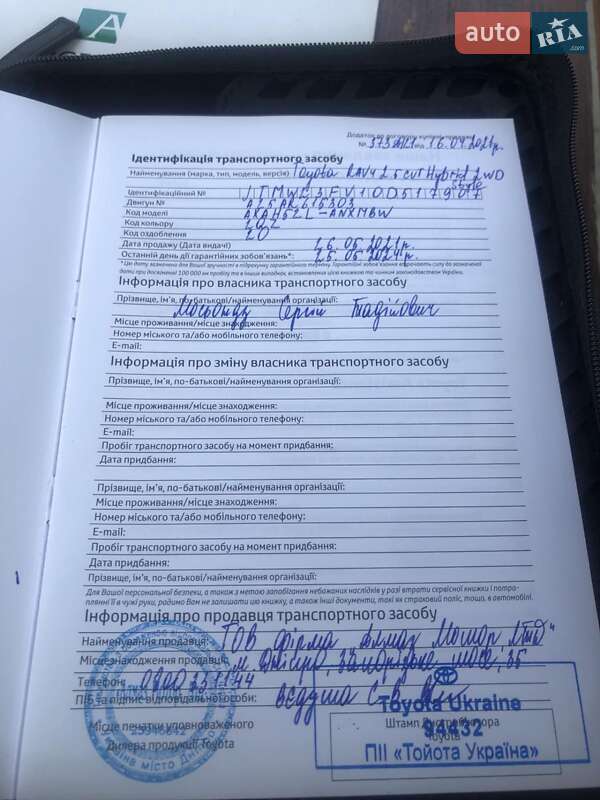 auto RIA .com
Додаток до договору купівлі-продажу
№ від 16.04.2021р.
Ідентифікація транспортного засобу
Найменування (марка, тип, модель, версія) Toyota RAV4 2.5 CVT Hybrid 2WD
Style
Ідентифікаційний № JTMW23FV10D517907
Двигун № A25AR615303
Код моделі AXAH52L-ANXMBW
Код кольору 202
Код оздоблення 20
Дата продажу (Дата видачі) 26.05.2021р.
Останній день дії гарантійних зобов'язань*: 25.05.2024р.
* Цю дату зазначено для Вашої зручності в підрахунку гарантійного терміну. Гарантійні зобов'язання втрачають силу до зазначеної
дати при досягненні 100 000 км пробігу та в інших випадках, встановлених цією книжкою та чинним законодавством України.
Інформація про власника транспортного засобу
Прізвище, ім'я, по-батькові/найменування організації:
Сергій
Місце проживання/місце знаходження:
Номер міського та/або мобільного телефону:
E-mail:
Інформація про зміну власника транспортного засобу
Прізвище, ім'я, по-батькові/найменування організації:
Місце проживання/місце знаходження:
Номер міського та/або мобільного телефону:
E-mail:
Пробіг транспортного засобу на момент придбання:
Дата придбання:
Прізвище, ім'я, по-батькові/найменування організації:
Місце проживання/місце знаходження:
Номер міського та/або мобільного телефону:
E-mail:
Пробіг транспортного засобу на момент придбання:
Дата придбання:
Прізвище, ім'я, по-батькові/найменування організації:
Для Вашої персональної безпеки, а також з метою запобігання небажаних наслідків у разі втрати сервісної книжки і потрап-
лянні її в чужі руки, радимо Вам не залишати цю книжку, а також інші документи, такі як страховий поліс, тощо, в автомобілі.
Інформація про продавця транспортного засобу
Найменування продавця: ТОВ фірма Алмаз Мотор, Лтд"
Місцезнаходження продавця: м. Дніпро, Запорізьке шосе, 35
Телефон: 0800331144
ПІБ та підпис відповідальної особи:
Місце печатки уповноваженого
Дилера продукції Toyota
25946642
Toyota Ukraine
Штамп Дистриб'ютора
Toyota
94432
ПІІ «Тойота Україна»